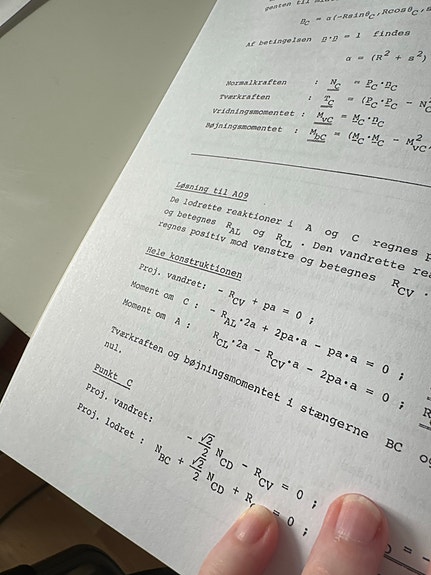 genten til
n_C = α(-Rsinθ_C, Rcosθ_C,
Af betingelsen n·n = 1 findes
α = (R² + s²)
Normalkraften : N_C = P_C·n_C
Tværkraften : T_C = (P_C·P_C - N_C
Vridningsmomentet : M_vC = M_C·n_C
Bøjningsmomentet : M_bC = (M_C·M_C - M²_vC
Løsning til A09
De lodrette reaktioner i A og C regnes
og betegnes R_AL og R_CL. Den vandrette
regnes positiv mod venstre og betegnes R_CV.
Hele konstruktionen
Proj. vandret: - R_CV + pa = 0 ;
Moment om C : - R_AL·2a + 2pa·a - pa·a = 0 ;
Moment om A : R_CL·2a - R_CV·a - 2pa·a = 0 ;
Tværkraften og bøjningsmomentet i stængerne BC
nul.
Punkt C
Proj. vandret: - √2/2 N_CD - R_CV = 0 ;
Proj. lodret : N_BC + √2/2 N_CD + = 0 ;